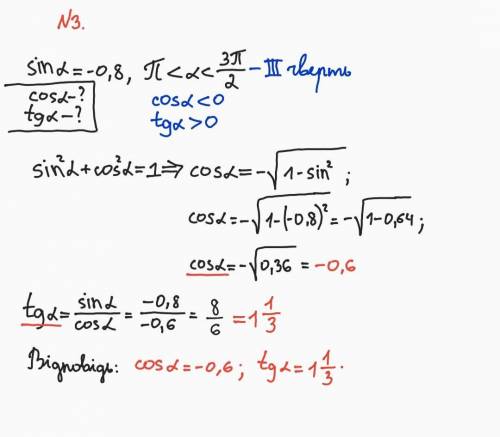 №3.
sinα = -0,8, π < α < 3π/2 – III чверть
cosα - ?
cosα < 0
tgα - ?
tgα > 0
sin²α + cos²α = 1 ⇒ cosα = -√(1 - sin²);
cosα = -√(1 - (-0,8)²) = -√(1 - 0,64);
cosα = -√0,36 = -0,6
tgα = sinα/cosα = -0,8/-0,6 = 8/6 = 1 1/3
Відповідь: cosα = -0,6; tgα = 1 1/3.